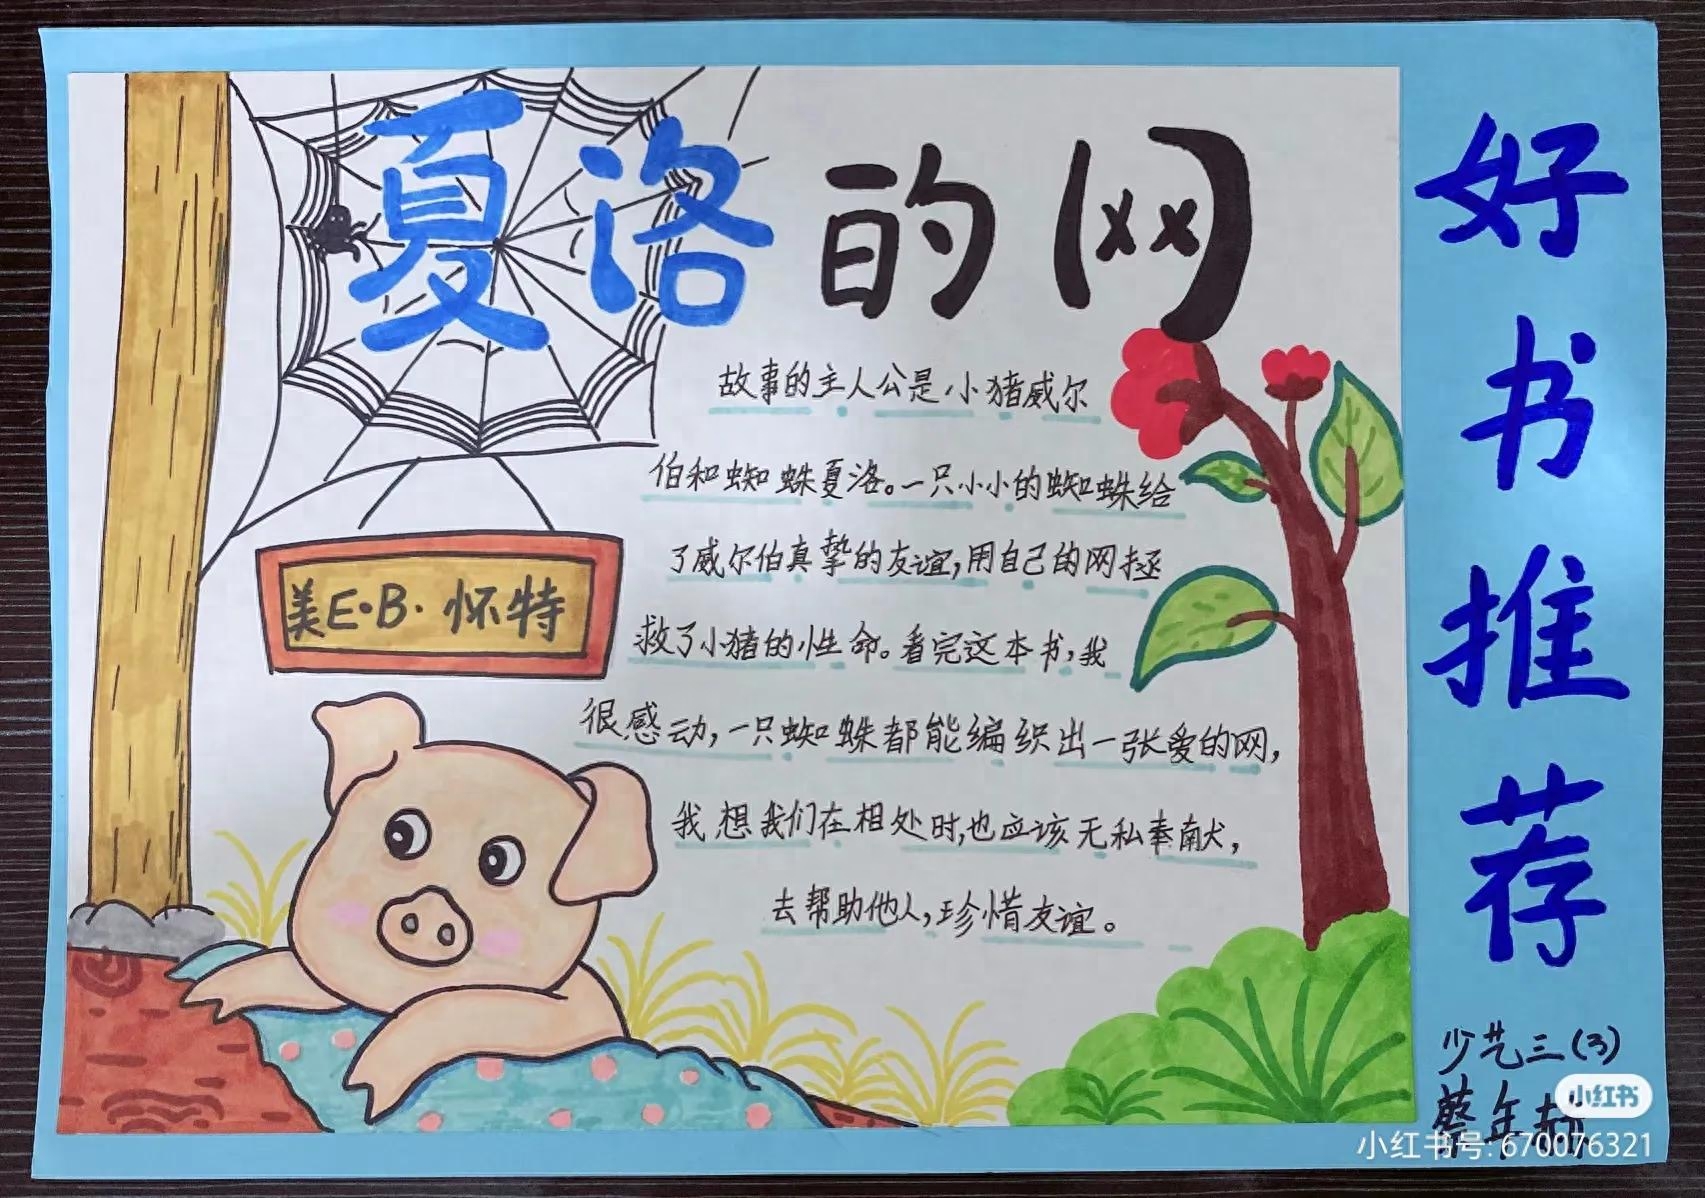 夏洛的网
故事的主人公是小猪威尔
伯和蜘蛛夏洛。一只小小的蜘蛛给
了威尔伯真挚的友谊,用自己的网拯
救了小猪的性命。看完这本书,我
很感动,一只蜘蛛都能编织出一张爱的网,
我想我们在相处时,也应该无私奉献,
去帮助他人,珍惜友谊。
美E·B·怀特
好书推荐
少艺三(3)
小红书
小红书号: 670076321